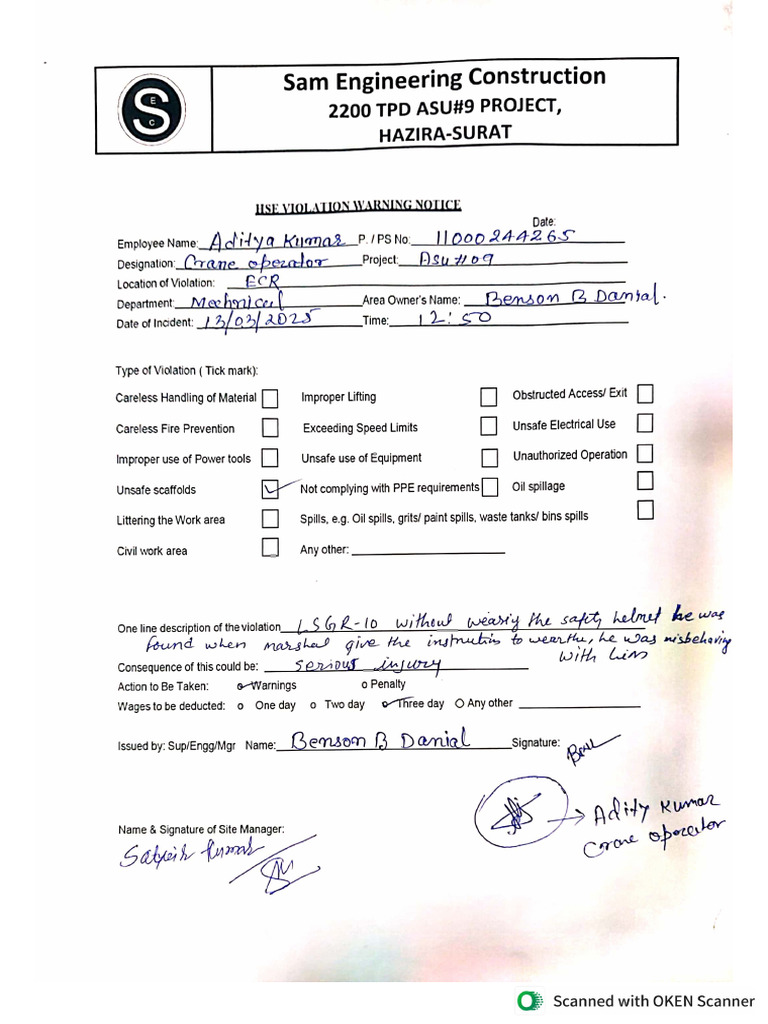 S E C
Sam Engineering Construction
2200 TPD ASU#9 PROJECT,
HAZIRA-SURAT
HSE VIOLATION WARNING NOTICE
Date:
Employee Name: Aditya Kumar P. / PS No: 11000244265
Designation: Crane operator Project: Asu #09
Location of Violation: ECR
Department: Mechnical Area Owner's Name: Benson B Danial.
Date of Incident: 13/03/2025 Time: 12:50
Type of Violation ( Tick mark):
Careless Handling of Material Improper Lifting Obstructed Access/ Exit
Careless Fire Prevention Exceeding Speed Limits Unsafe Electrical Use
Improper use of Power tools Unsafe use of Equipment Unauthorized Operation
Unsafe scaffolds ✓ Not complying with PPE requirements Oil spillage
Littering the Work area Spills, e.g. Oil spills, grits/ paint spills, waste tanks/ bins spills
Civil work area Any other:
One line description of the violation LSGR-10 without wearing the safety helmet he was
found when marshal give the instruction to wear the, he was misbehaving
with him
Consequence of this could be: serious injury
Action to Be Taken: Warnings o Penalty
Wages to be deducted: o One day o Two day Three day O Any other
Issued by: Sup/Engg/Mgr Name: Benson B Danial Signature:
Adity Kumar
Crane operator
Name & Signature of Site Manager:
Kumar
Scanned with OKEN Scanner